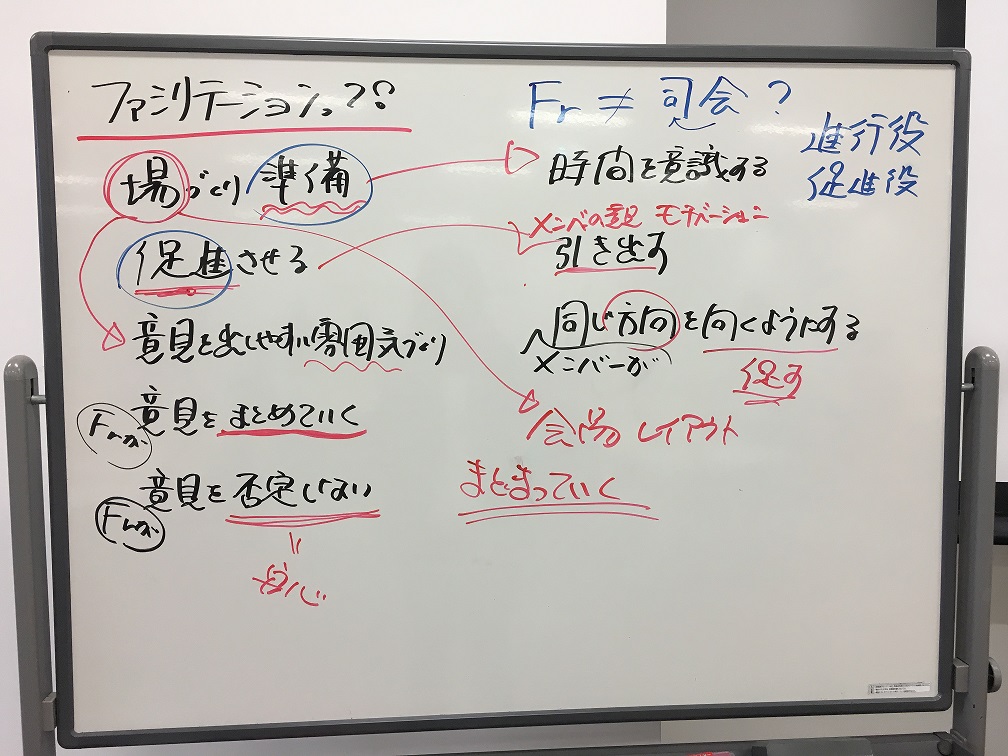 ファシリテーションって?
場づくり 準備
促進させる
意見を出しやすい雰囲気づくり
Frが
意見をまとめていく
Frが
意見を否定しない
=
安心
Fr ≠ 司会?
進行役
促進役
時間を意識する
メンバの意見 モチベーション
引き出す
同じ方向を向くようにする
メンバーが
促す
会場レイアウト
まとまっていく